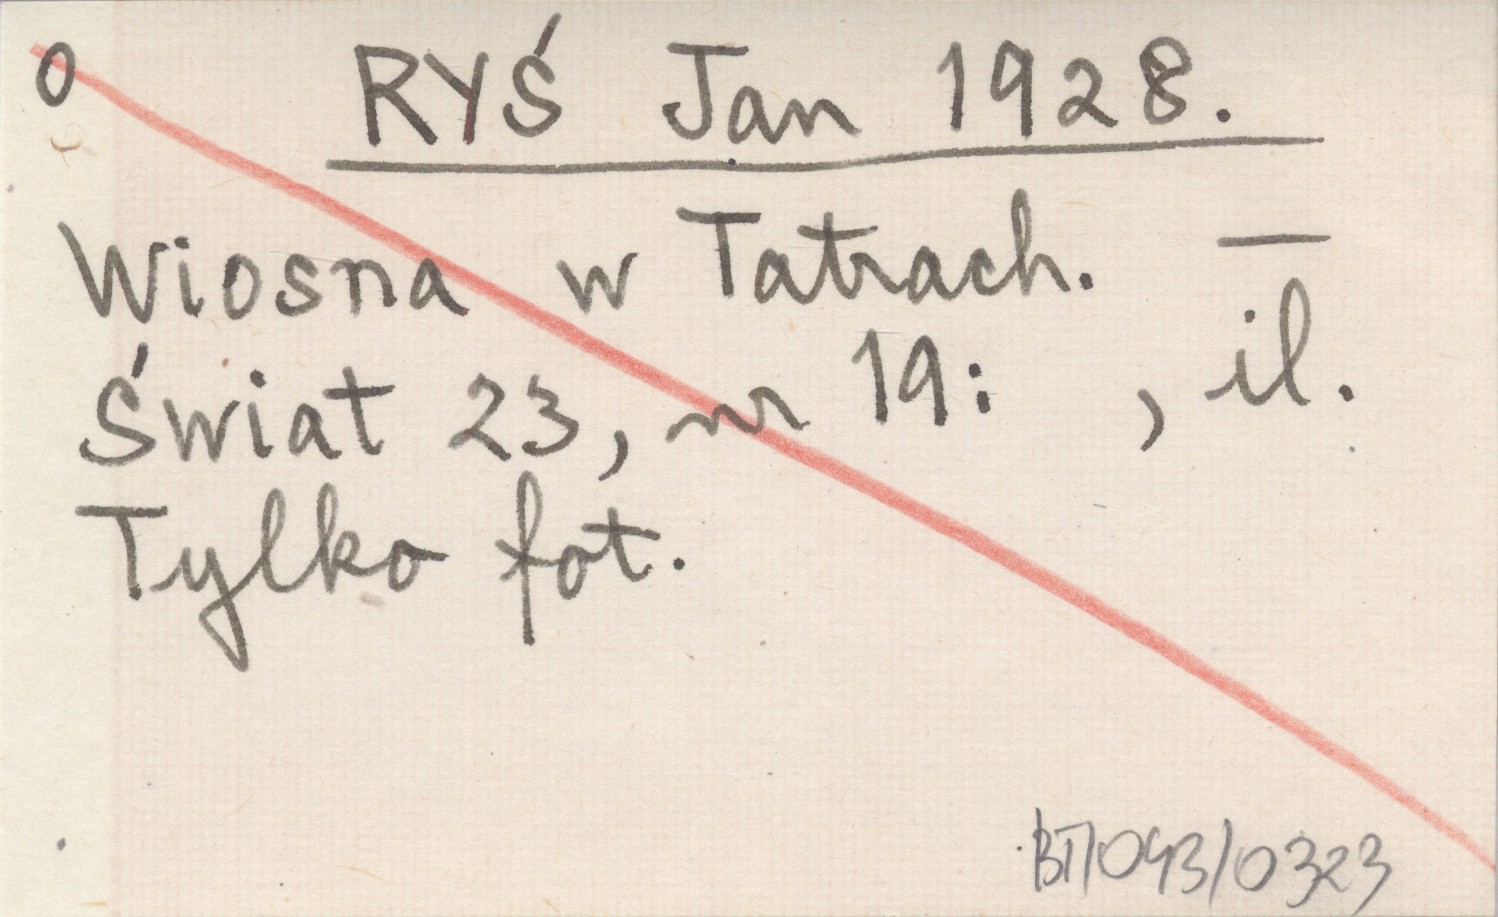 0 RYŚ Jan 1928.
Wiosna w Tatrach. —
Świat 23, nr 19: , il.
Tylko fot.
BT/043/0323